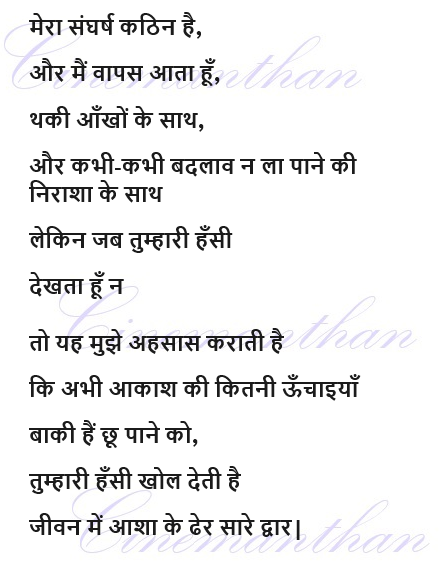 मेरा संघर्ष कठिन है,
और मैं वापस आता हूँ,
थकी आँखों के साथ,
और कभी-कभी बदलाव न ला पाने की
निराशा के साथ
लेकिन जब तुम्हारी हँसी
देखता हूँ न
तो यह मुझे अहसास कराती है
कि अभी आकाश की कितनी ऊँचाइयाँ
बाकी हैं छू पाने को,
तुम्हारी हँसी खोल देती है
जीवन में आशा के ढेर सारे द्वार|
Cinemanthan
Cinemanthan
Cinemanthan